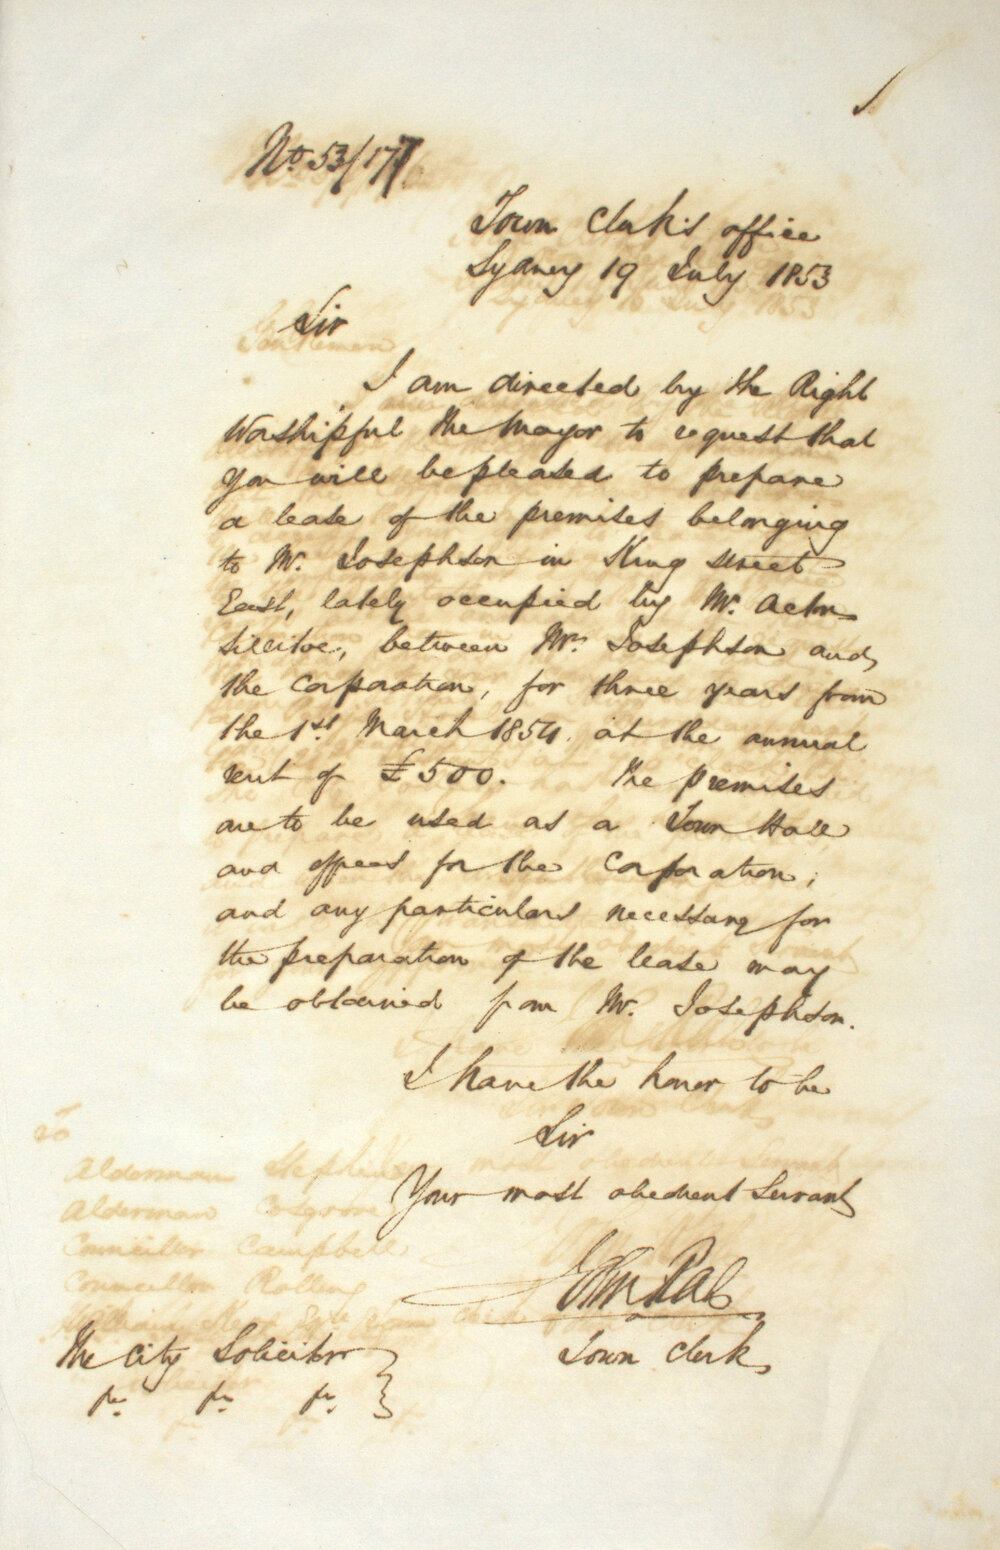 No. 53/177
Town Clerk's office
Sydney 19 July 1853
Sir
I am directed by the Right
Worshipful the Mayor to request that
you will be pleased to prepare
a lease of the premises belonging
to Mr. Josephson in King street
East, lately occupied by Mr. Acton
Solicitor, between Mr. Josephson and
the Corporation, for three years from
the 1st March 1854 at the annual
rent of £500. The premises
are to be used as a Town Hall
and offices for the Corporation;
and any particulars necessary for
the preparation of the lease may
be obtained from Mr. Josephson.
I have the honor to be
Sir
Your most obedient Servant
John Rae
Town Clerk
The City Solicitor